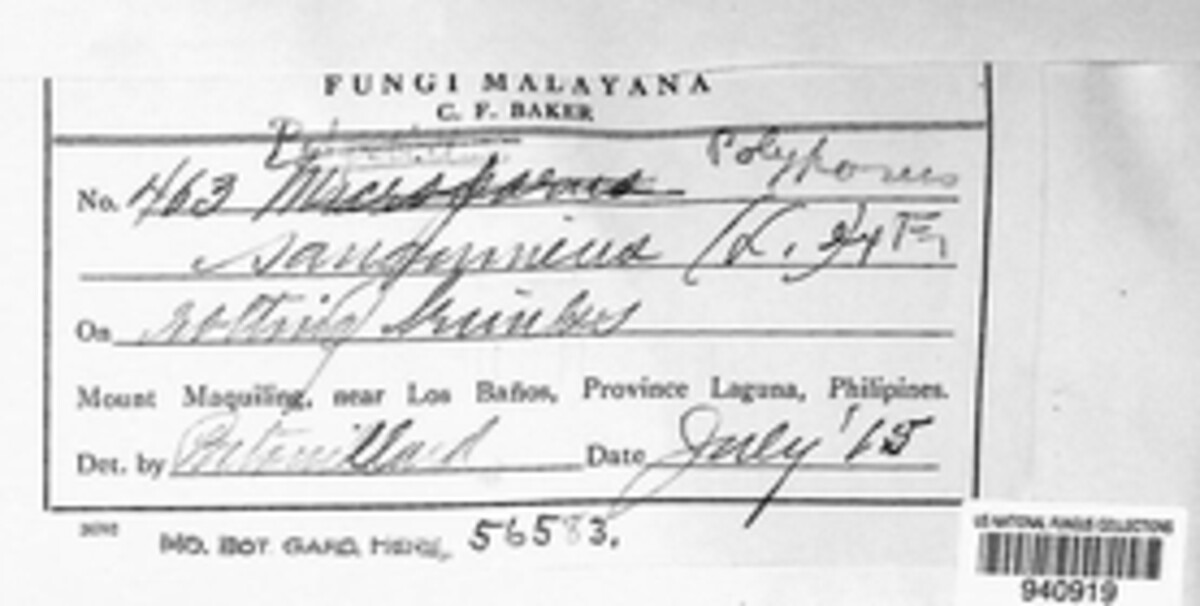 FUNGI MALAYANA
C. F. BAKER
Polyporus
No. 463
sanguineus (L. ex Fr
On rotting
Mount Maquiling, near Los Baños, Province Laguna, Philipines.
Det. by Patouillard Date July '15
MO. BOT. GARD. HERB. 56583.
US NATIONAL FUNGUS COLLECTIONS
940919